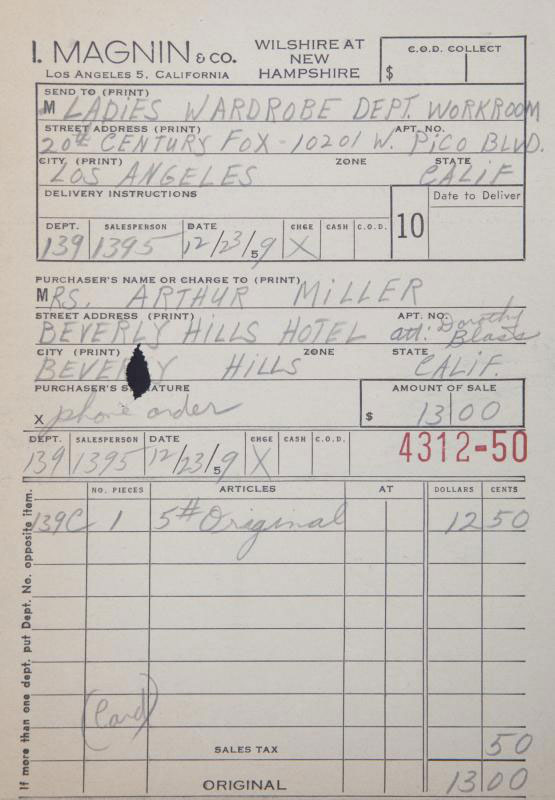 I. MAGNIN & CO.
LOS ANGELES 5, CALIFORNIA
WILSHIRE AT
NEW
HAMPSHIRE
C.O.D. COLLECT
$
SEND TO (PRINT)
M LADIES WARDROBE DEPT. WORKROOM
STREET ADDRESS (PRINT) APT. NO.
20th CENTURY FOX - 10201 W. PICO BLVD.
CITY (PRINT) ZONE STATE
LOS ANGELES CALIF
DELIVERY INSTRUCTIONS
10
Date to Deliver
DEPT. SALESPERSON DATE CHGE CASH C.O.D.
139 1395 12/23/59 X
PURCHASER'S NAME OR CHARGE TO (PRINT)
MRS. ARTHUR MILLER
STREET ADDRESS (PRINT) APT. NO.
BEVERLY HILLS HOTEL att: Dorothy Blass
CITY (PRINT) ZONE STATE
BEVERLY HILLS CALIF.
PURCHASER'S SIGNATURE
X phone order
AMOUNT OF SALE
$ 13 00
DEPT. SALESPERSON DATE CHGE CASH C.O.D.
139 1395 12/23/59 X
4312-50
If more than one dept. put Dept. No. opposite item.
NO. PIECES ARTICLES AT DOLLARS CENTS
139C 1 5# Original 12 50
(Card)
SALES TAX 50
ORIGINAL 13 00